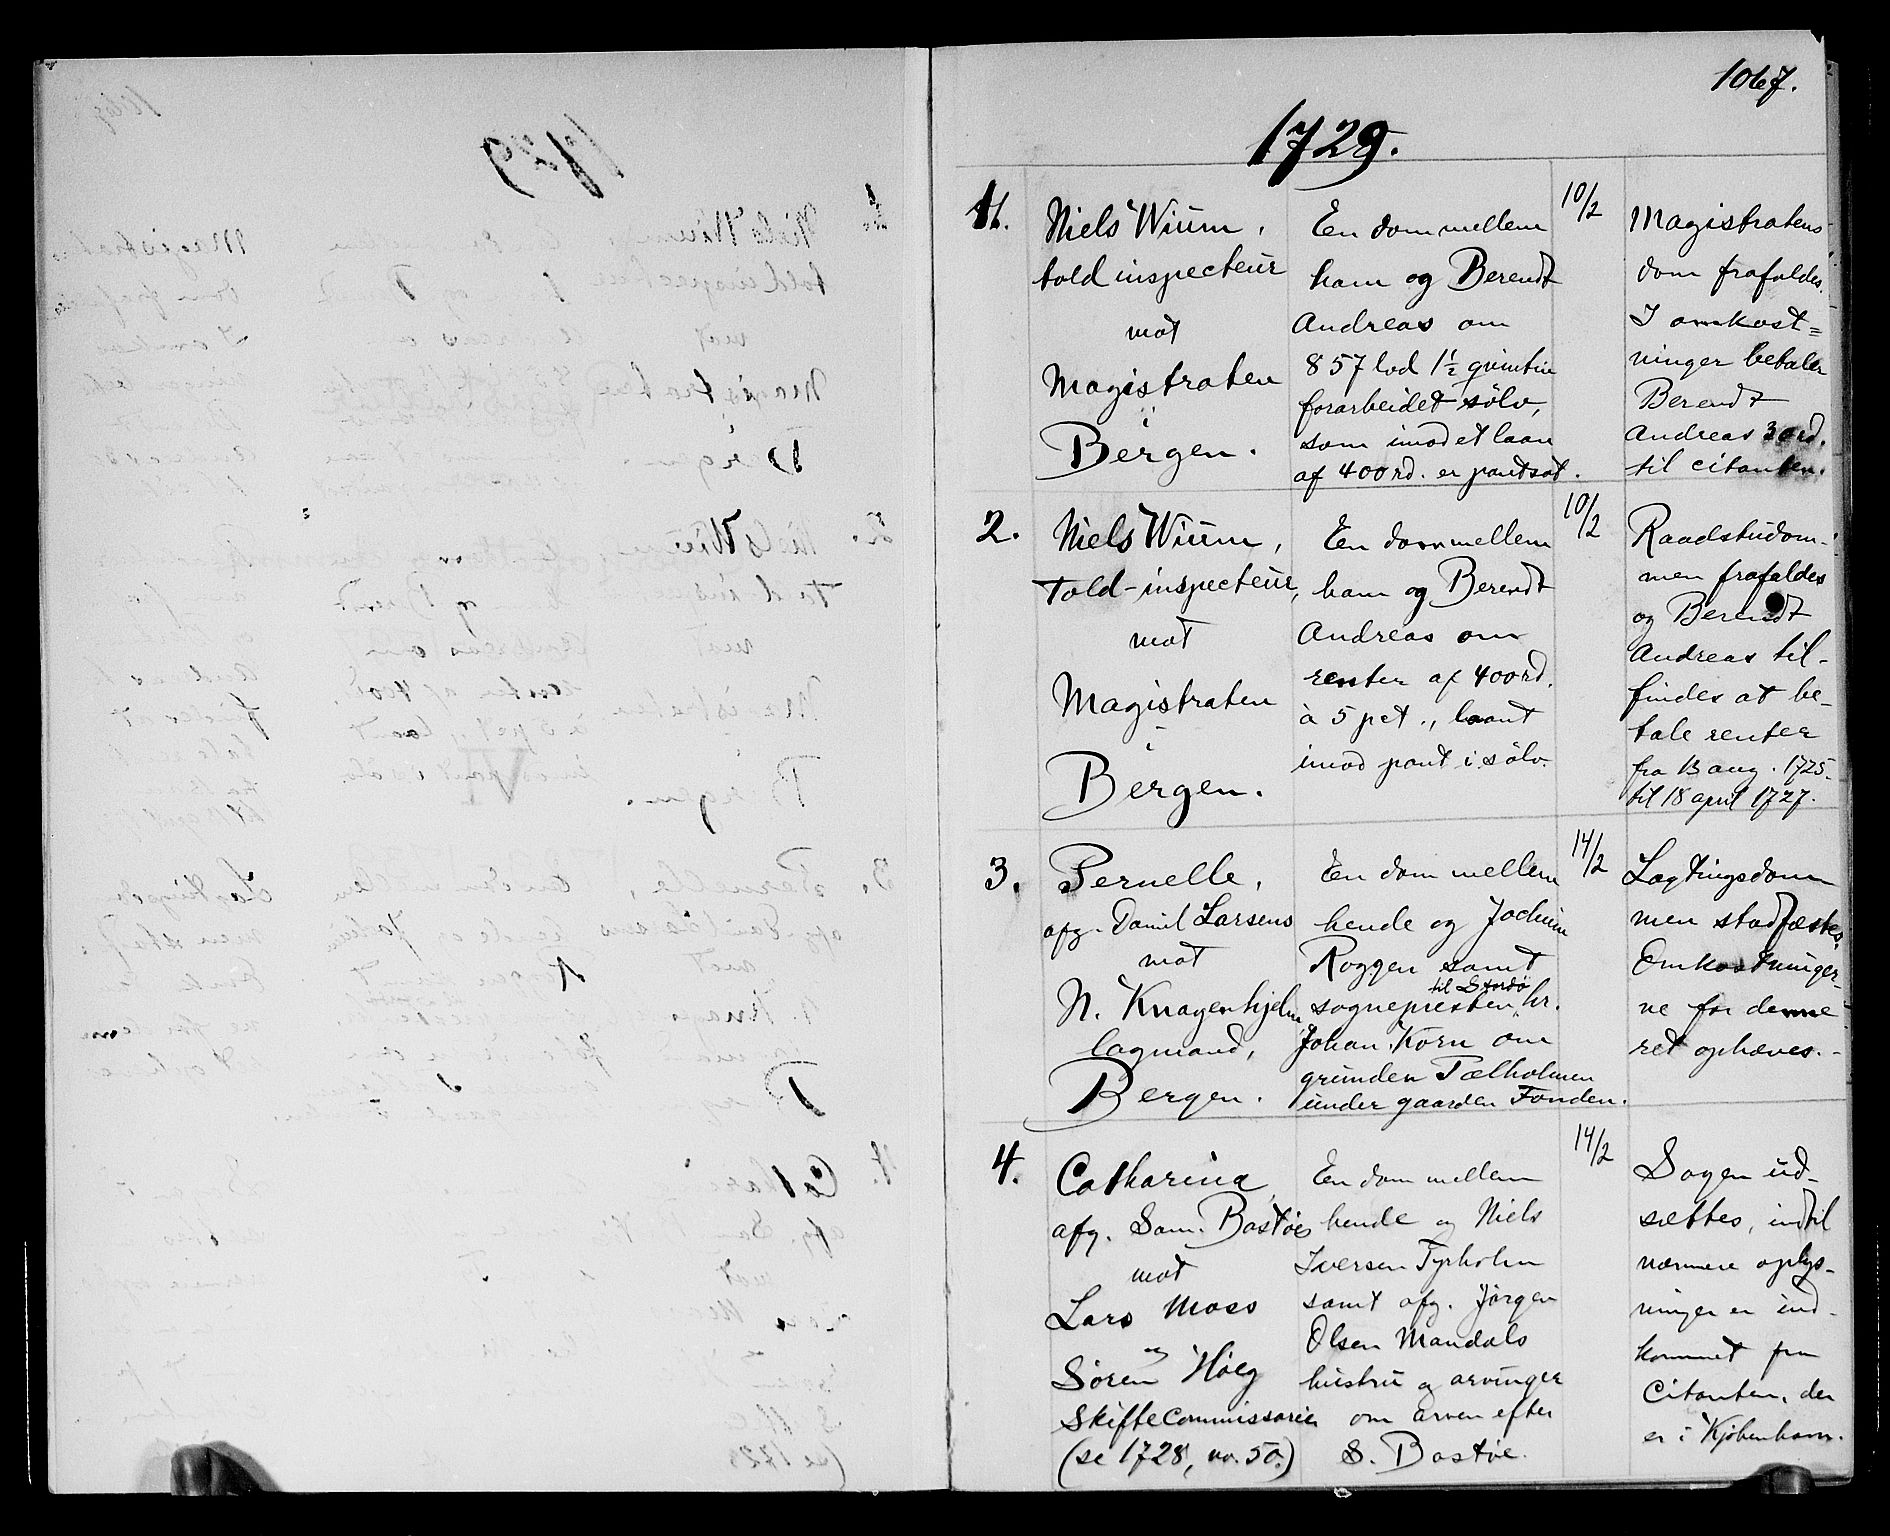 1067.
1729.
1.
Niels Wium,
toldinspecteur
mot
Magistraten
i
Bergen.
En dom mellem
ham og Berendt
Andreas om
857 lod 1½ quintin
forarbeidet sölv,
som imod et laan
af 400 rd. er pantsat.
10/2
Magistratens
dom frafaldes.
I omkost=
ninger betaler
Berendt
Andreas 3 ord.
til citanten.
2.
Niels Wium,
Told-inspecteur,
mot
Magistraten
i
Bergen.
En dom mellem
ham og Berendt
Andreas om
renter af 400 rd.
à 5 pct., laant
imod pant i sölv.
10/2
Raadstudom-
men frafaldes
og Berendt
Andreas til-
findes at be-
tale renter
fra 13 aug. 1725
til 18 april 1727.
3.
Pernelle,
afg. Daniel Larsens
mot
N. Knagenhjelm
lagmand,
Bergen.
En dom mellem
hende og Jochim
Roggen samt
til Stordö
sognepresten hr.
Johan Korn om
grunden Pælholmen
under gaarden Fonden.
14/2
Lagtingsdom
men stadfæstes.
Omkostninger-
ne for denne
ret ophæves.-
4.
Catharina,
afg. Sam. Bastøes
mot
Lars Moss
og
Sören Höeg
Skiftecommissarier
(se 1728, no. 50.)
En dom mellem
hende og Niels
Iversen Tyrholm
samt afg. Jörgen
Olsen Mandals
hustru og arvinger
om arven efter
S. Bastöe.
14/2
Sagen ud-
sættes, indtil
nærmere oplys-
ninger er ind-
kommet fra
Citanten, der
er i Kjöbenhavn.